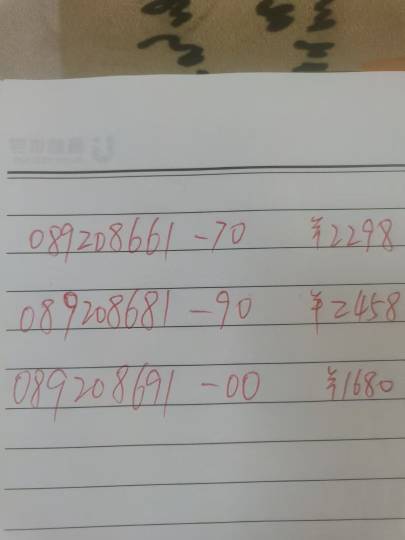 089208661-70 ¥2298
089208681-90 ¥2458
089208691-00 ¥1680